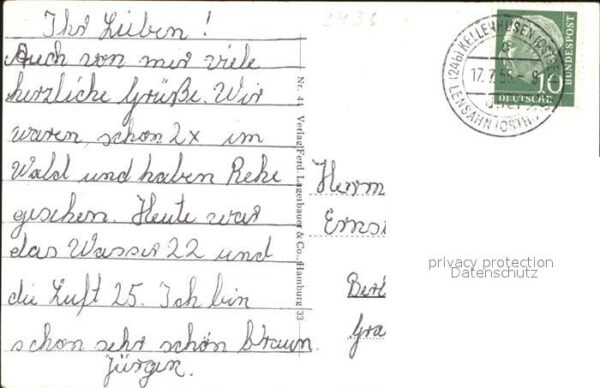 Ihr Lieben!
Auch von mir viele
herzliche Grüße. Wir
waren schon 2x im
Wald und haben Rehe
gesehen. Heute war
das Wasser 22 und
die Luft 25. Ich bin
schon sehr schön braun.
Jürgen.
2436
Nr. 41 Verlag Ferd. Lagerbauer & Co., Hamburg 33
(24b) KELLENHUSEN (OSTS
17.7.56 - 9
LENSAHN (OSTH
10
DEUTSCHE
BUNDESPOST
Herrn
Erns
Berl
Gra
privacy protection
Datenschutz